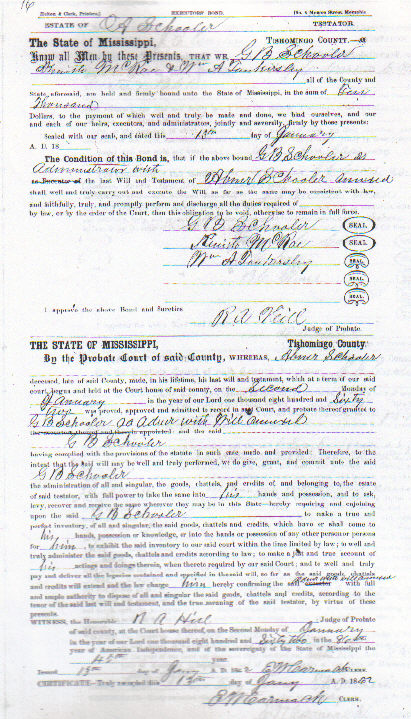 16
Hutton & Clark, Printers,] EXECUTORS' BOND. [No. 8 Monroe Street, Memphis
ESTATE OF A Schooler TESTATOR.
The State of Mississippi, TISHOMINGO COUNTY.
Know all Men by these Presents, THAT WE G B Schooler
McRae & Wm A Tankersley all of the County and
State, aforesaid, are held and firmly bound unto the State of Mississippi, in the sum of
Thousand
Dollars, to the payment of which well and truly be made and done, we bind ourselves, and our
and each of our heirs, executors, and administrators, jointly and severally, firmly by these presents:
Sealed with our seals, and dated this 13th day of January
A. D. 18
The Condition of this Bond is, that if the above bound G B Schooler as
Administrator with
of the last Will and Testament of Abner Schooler annexed
shall well and truly carry out and execute the Will, as far as the same may be consistent with law,
and faithfully, truly, and promptly perform and discharge all the duties required of
by law, or by the order of the Court, then this obligation to be void, otherwise to remain in full force.
G B Schooler SEAL.
McRae SEAL.
Wm A Tankersley SEAL.
SEAL.
SEAL.
I approve the above Bond and Sureties
R A Hill
Judge of Probate.
THE STATE OF MISSISSIPPI, Tishomingo County.
By the Probate Court of said County, WHEREAS, Abner Schooler
deceased, late of said County, made, in his lifetime, his last will and testament, which at a term of our said
court, begun and held at the Court house of said county, on the Second Monday of
January in the year of our Lord one thousand eight hundred and Sixty
two was proved, approved and admitted to record in said Court, and probate thereof granted to
G B Schooler as Admr with Will annexed
and the said
G B Schooler
having complied with the provisions of the statute in such case made and provided: Therefore, to the
intent that the said will may be well and truly performed, we do give, grant, and commit unto the said
G B Schooler
the administration of all and singular, the goods, chattels, and credits of, and belonging to, the estate
of said testator, with full power to take the same into his hands and possession, and to ask,
levy, recover and receive the same wherever they may be in this State—hereby requiring and enjoining
upon the said G B Schooler to make a true and
perfect inventory, of all and singular, the said goods, chattels and credits, which have or shall come to
his hands, possession or knowledge, or into the hands or possession of any other person or persons
for him, to exhibit the said inventory to our said court within the time limited by law; to well and
truly administer the said goods, chattels and credits according to law; to make a just and true account of
his actings and doings therein, when thereto required by our said Court; and to well and truly
pay and deliver all the legacies contained and specified in the said will, so far as the said goods, chattels
and credits will extend and the law charge him hereby confirming the said with full
and ample authority to dispose of all and singular the said goods, chattels and credits, according to the
tenor of the said last will and testament, and the true meaning of the said testator, by virtue of these
presents.
WITNESS, the Honorable R A Hill Judge of Probate
of said county, at the Court house thereof, on the Second Monday of January
in the year of our Lord one thousand eight hundred and Sixty two and in the
year of American Independence, and of the sovereignty of the State of Mississippi the
year.
Issued 13th day of Jany A. D. 1862 E W Carmack CLERK.
CERTIFICATE—Truly recorded this 13th day of Jany A. D. 1862
E W Carmack CLERK.